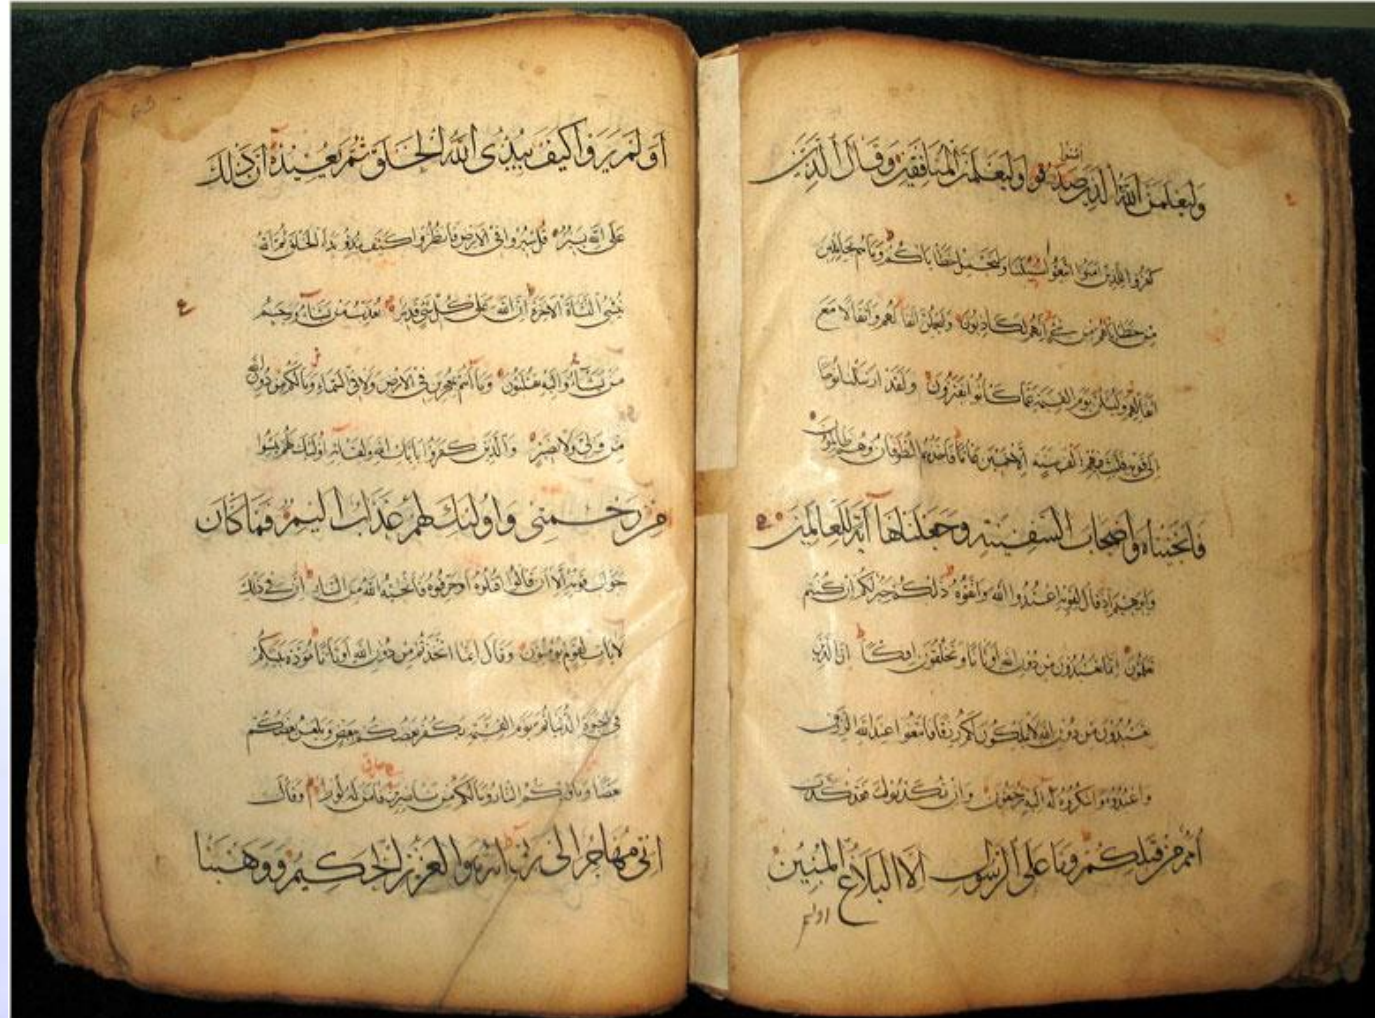 امنوا
وَلَيَعْلَمَنَّ اللهُ الَّذِينَ صَدَقُوا وَلَيَعْلَمَنَّ الْمُنَافِقِينَ وَقَالَ الَّذِينَ
كفروا للذين امنوا اتبعوا سبيلنا ولنحمل خطاياكم وما هم بحاملين
من خطاياهم من شئ انهم لكاذبون وليحملن اثقالهم واثقالا مع
اثقالهم وليسئلن يوم القيمة عما كانوا يفترون ولقد ارسلنا نوحا
الى قومه فلبث فيهم الف سنة الا خمسين عاما فاخذهم الطوفان وهم ظالمون
فَانْجَيْنَاهُ وَاَصْحَابَ السَّفِينَةِ وَجَعَلْنَاهَا آيَةً لِلْعَالَمِينَ
وابرهيم اذ قال لقومه اعبدوا الله واتقوه ذلكم خير لكم ان كنتم
تعلمون انما تعبدون من دون الله اوثانا وتخلقون افكا ان الذين
تعبدون من دون الله لا يملكون لكم رزقا فابتغوا عند الله الرزق
واعبدوه واشكروه له اليه ترجعون وان تكذبوك فقد كذب
اُمَمٌ مِنْ قَبْلِكُمْ وَمَا عَلَى الرَّسُولِ اِلَّا الْبَلَاغُ الْمُبِينُ
اولم
اَوَلَمْ يَرَوْا كَيْفَ يُبْدِئُ اللهُ الْخَلْقَ ثُمَّ يُعِيدُهُ اِنَّ ذَلِكَ
على الله يسير قل سيروا فى الارض فانظروا كيف بدؤ بدا الخلق ثم الله
ينشئ النشاة الاخرة ان الله على كل شئ قدير يعذب من يشاء ويرحم
ع
من يشاء واليه تقلبون وما انتم بمعجزين فى الارض ولا فى السماء وما لكم من دون الله
من ولى ولا نصير والذين كفروا بايات الله ولقائه اولئك هم يئسوا
مِنْ رَحْمَتِى وَاُولَئِكَ لَهُمْ عَذَابٌ اَلِيمٌ فَمَا كَانَ
جواب قومه الا ان قالوا اقتلوه او حرقوه فانجيه الله من النار ان فى ذلك
لايات لقوم يؤمنون وقال انما اتخذتم من دون الله اوثانا مودة بينكم
فى الحيوة الدنيا ثم يوم القيمة يكفر بعضكم ببعض ويلعن بعضكم
بعضا وماويكم النار وما لكم من ناصرين فامن له لوط وقال
اِنِّى مُهَاجِرٌ اِلَى رَبِّى اِنَّهُ هُوَ الْعَزِيزُ الْحَكِيمُ وَوَهَبْنَا